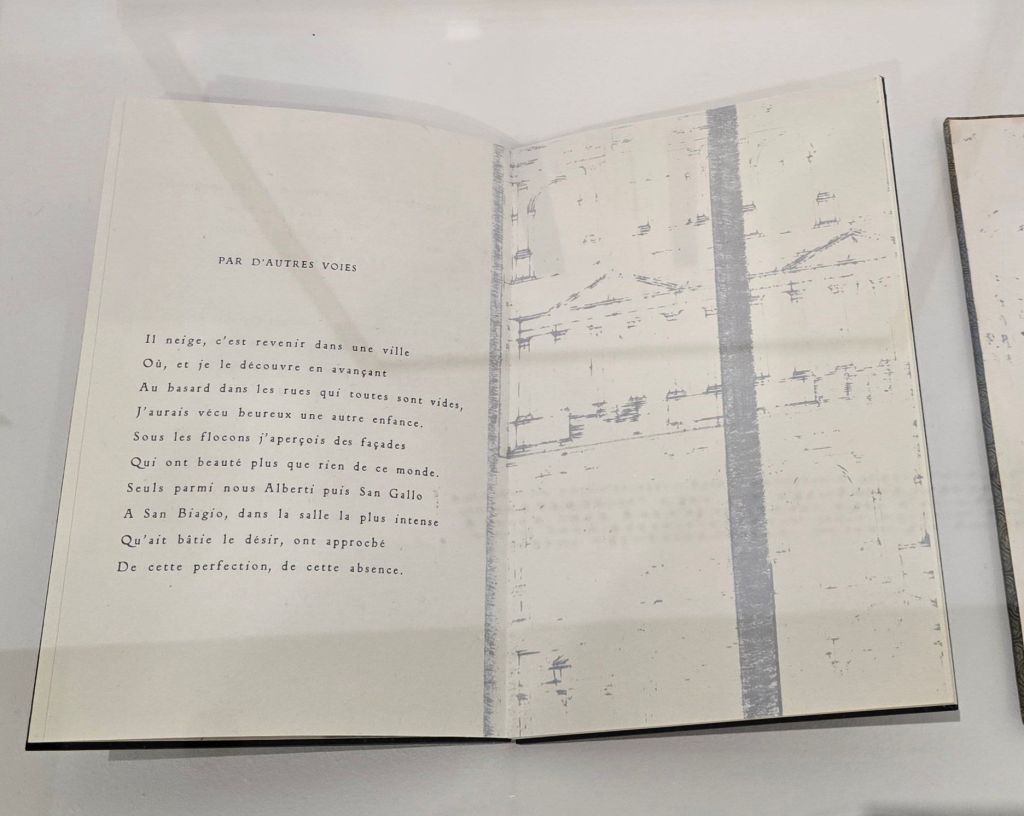 PAR D'AUTRES VOIES
Il neige, c'est revenir dans une ville
Où, et je le découvre en avançant
Au hasard dans les rues qui toutes sont vides,
J'aurais vécu heureux une autre enfance.
Sous les flocons j'aperçois des façades
Qui ont beauté plus que rien de ce monde.
Seuls parmi nous Alberti puis San Gallo
A San Biagio, dans la salle la plus intense
Qu'ait bâtie le désir, ont approché
De cette perfection, de cette absence.